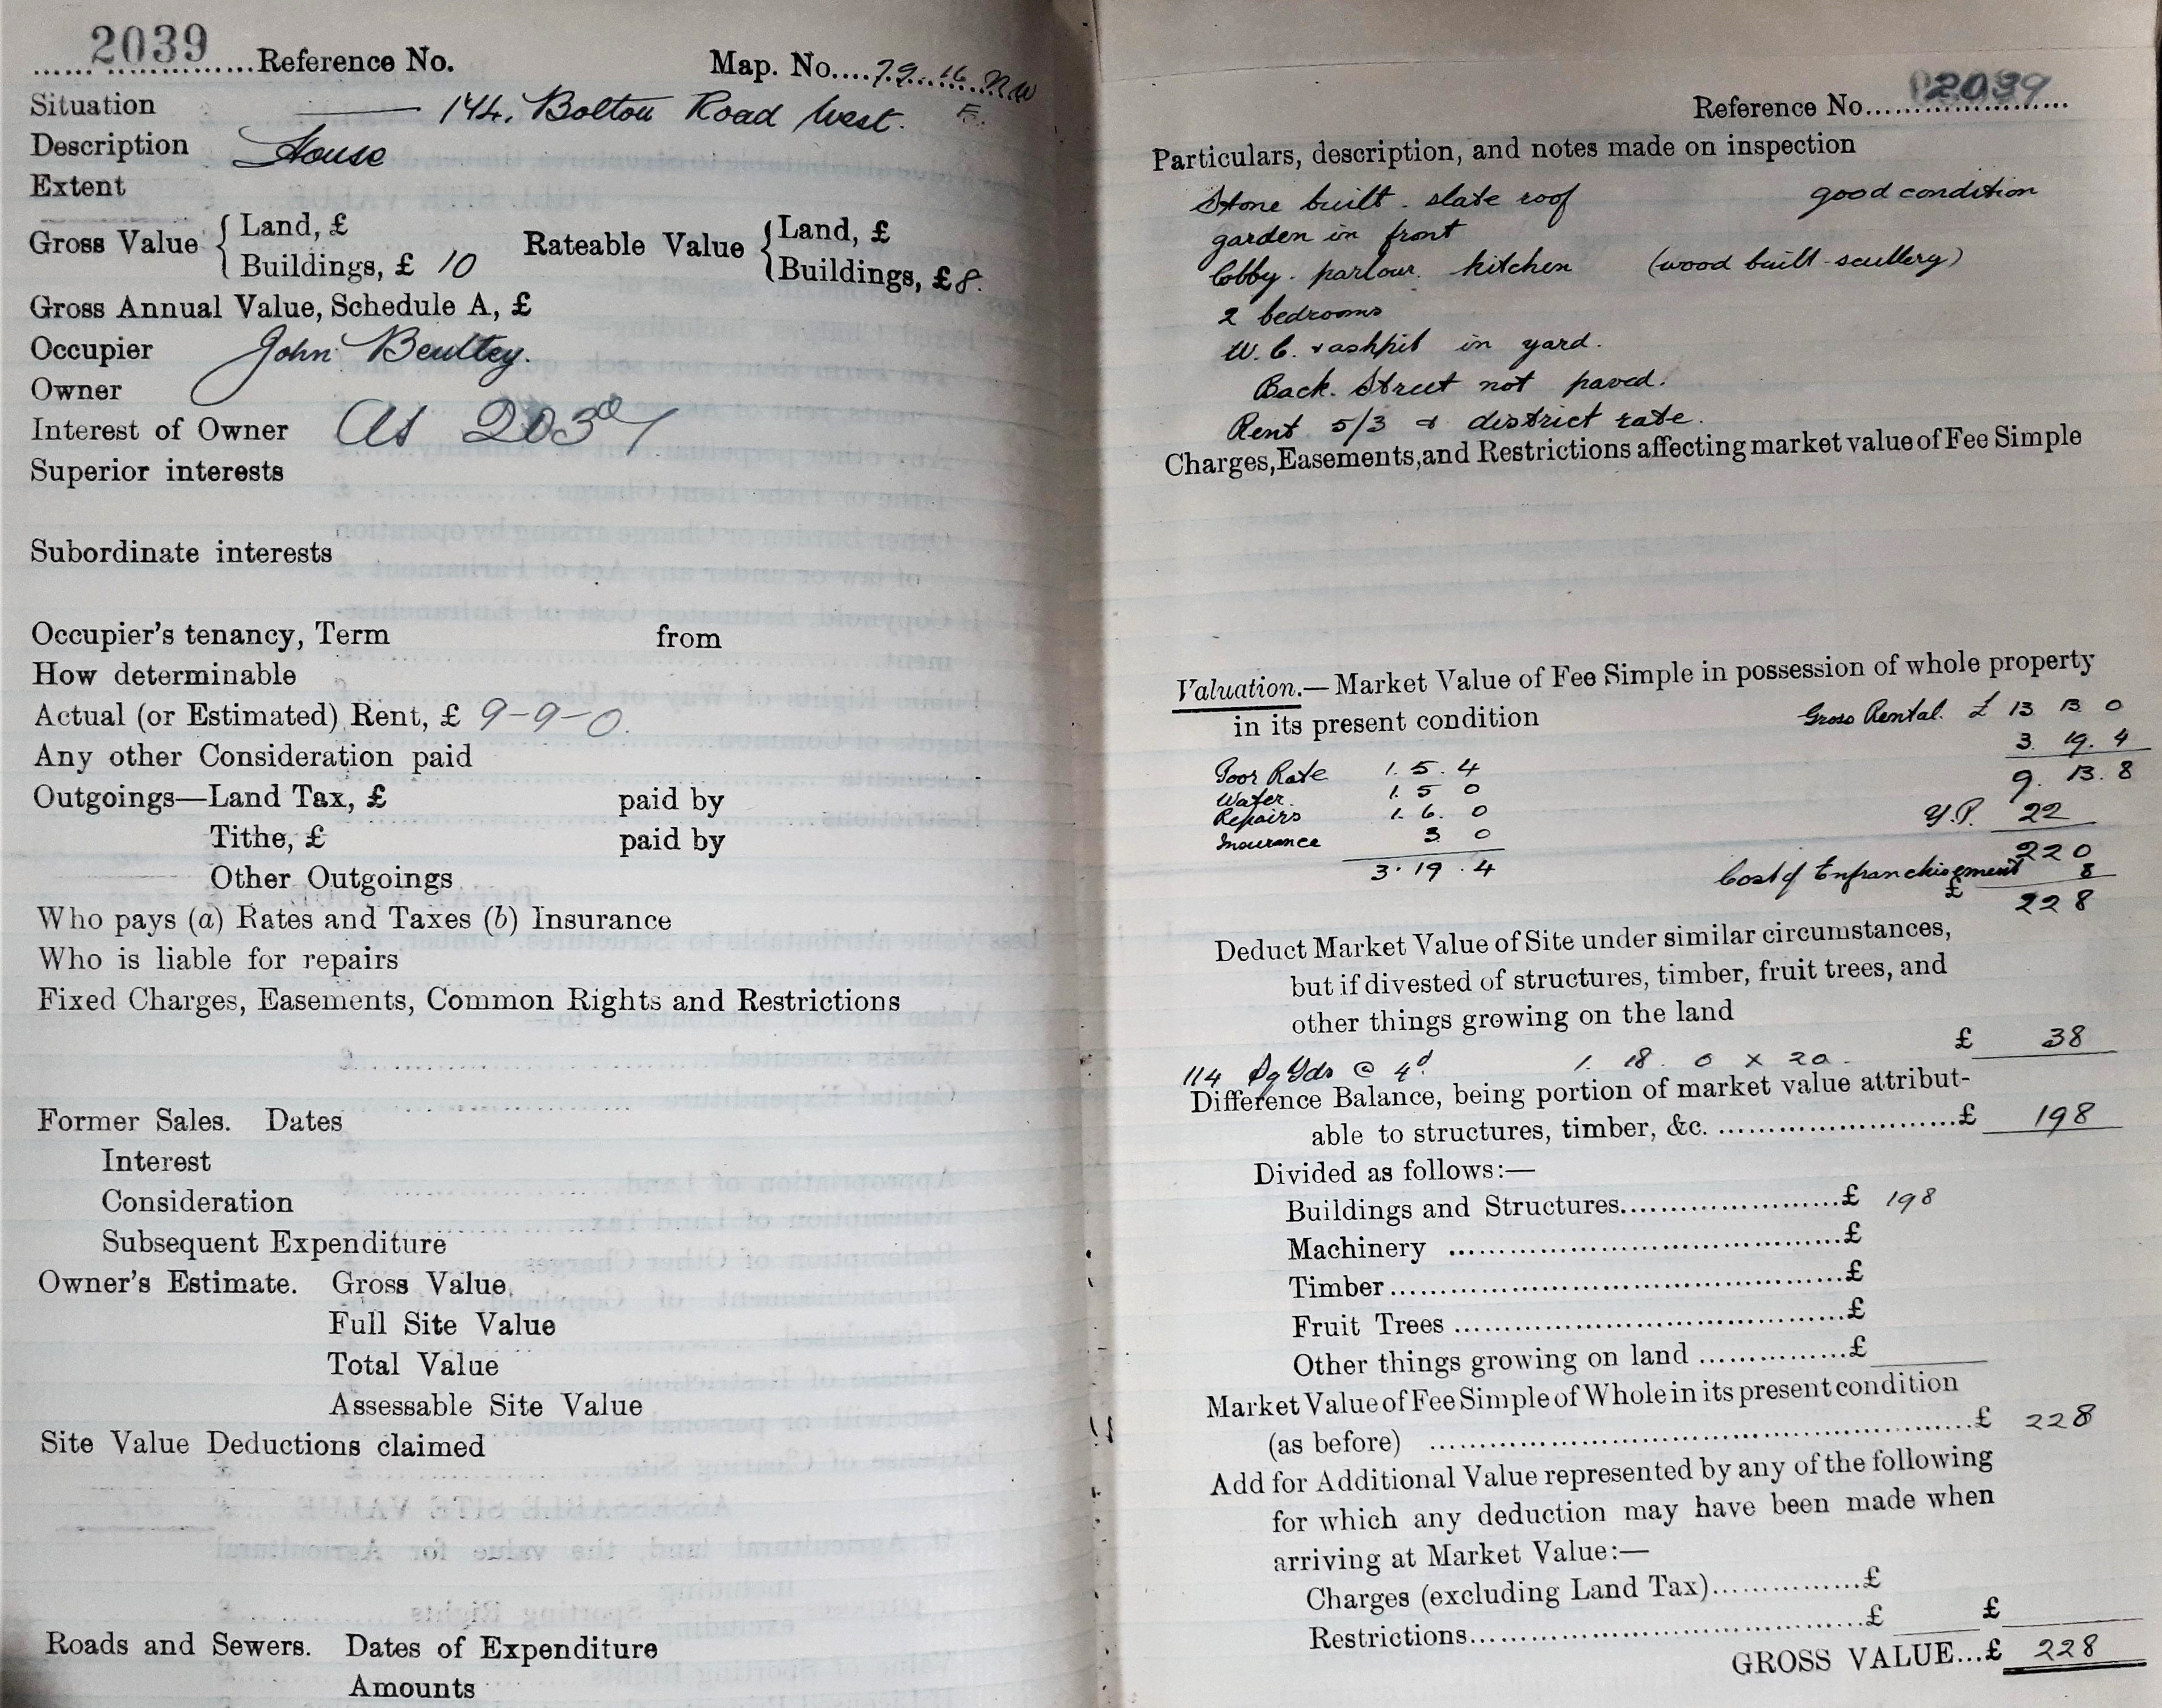 2039 Reference No. Map. No. 79.16 NW
Situation 144. Bolton Road West.
Description House
Extent
Gross Value { Land, £ Rateable Value { Land, £
Buildings, £ 10 Buildings, £ 8.
Gross Annual Value, Schedule A, £
Occupier John
Owner
Interest of Owner As
Superior interests
Subordinate interests
Occupier's tenancy, Term from
How determinable
Actual (or Estimated) Rent, £ 9-9-0.
Any other Consideration paid
Outgoings—Land Tax, £ paid by
Tithe, £ paid by
Other Outgoings
Who pays (a) Rates and Taxes (b) Insurance
Who is liable for repairs
Fixed Charges, Easements, Common Rights and Restrictions
Former Sales. Dates
Interest
Consideration
Subsequent Expenditure
Owner's Estimate. Gross Value
Full Site Value
Total Value
Assessable Site Value
Site Value Deductions claimed
Roads and Sewers. Dates of Expenditure
Amounts
Reference No. 2039
Particulars, description, and notes made on inspection
Stone built - slate roof good condition
garden in front
lobby. parlour. kitchen (wood built scullery)
2 bedrooms
W.C. & ashpit in yard.
Back. Street not paved.
Rent 5/3 & district rate.
Charges, Easements, and Restrictions affecting market value of Fee Simple
Valuation.— Market Value of Fee Simple in possession of whole property
in its present condition Gross Rental. £ 13 13 0
3. 19. 4
Poor Rate 1. 5. 4 9. 13. 8
Water. 1. 5 0
Repairs 1. 6. 0 Y.P. 22
Insurance 3 0 220
3. 19. 4 Cost of Enfranchisement 8
£ 228
Deduct Market Value of Site under similar circumstances,
but if divested of structures, timber, fruit trees, and
other things growing on the land £ 38
114 Sq Yds @ 4d 1. 18. 0 x 20.
Difference Balance, being portion of market value attribut-
able to structures, timber, &c. £ 198
Divided as follows:—
Buildings and Structures £ 198
Machinery £
Timber £
Fruit Trees £
Other things growing on land £
Market Value of Fee Simple of Whole in its present condition
(as before) £ 228
Add for Additional Value represented by any of the following
for which any deduction may have been made when
arriving at Market Value:—
Charges (excluding Land Tax) £
Restrictions £ £
GROSS VALUE...£ 228